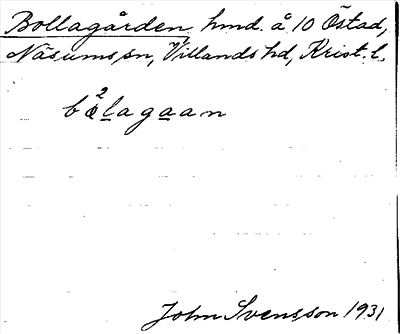 Bollagården hmd. å 10 Östad,
Näsums sn, Villands hd, Krist. l.
2
bœlagaan
John Svensson 1931